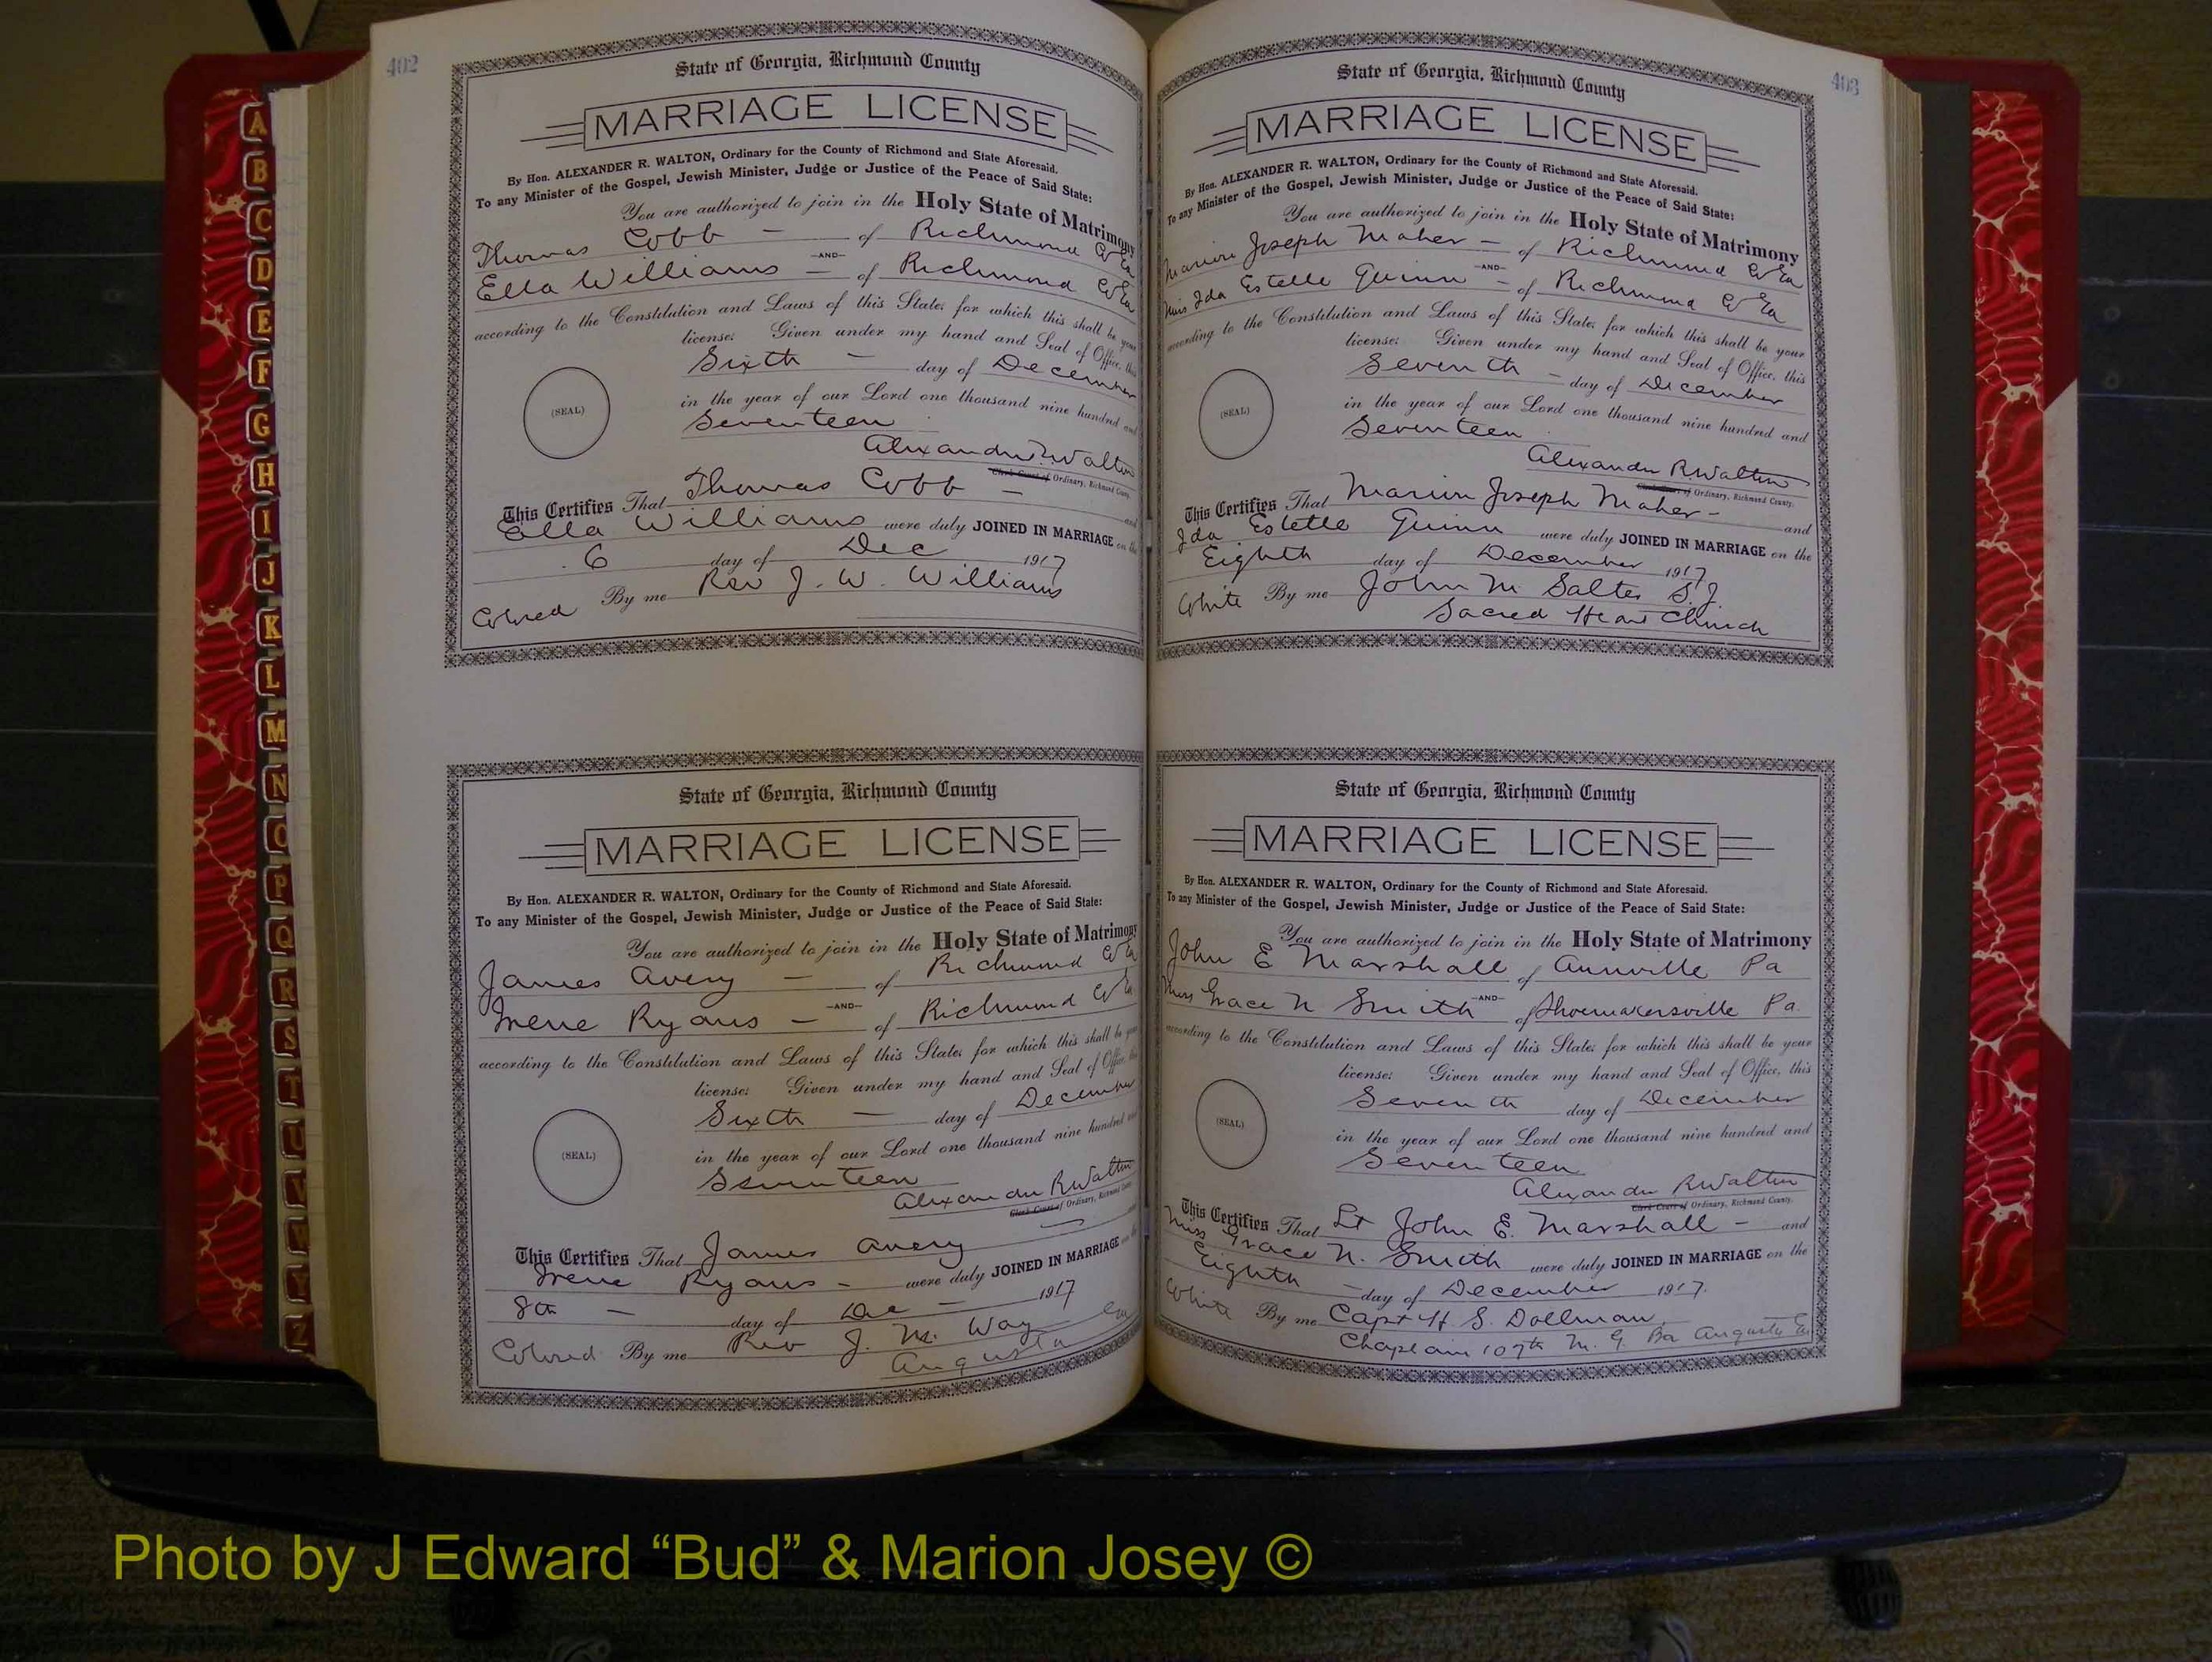 402
State of Georgia, Richmond County
MARRIAGE LICENSE
By Hon. ALEXANDER R. WALTON, Ordinary for the County of Richmond and State Aforesaid.
To any Minister of the Gospel, Jewish Minister, Judge or Justice of the Peace of Said State:
You are authorized to join in the Holy State of Matrimony
Thomas Cobb — of Richmond Co Ga
—AND—
Ella Williams — of Richmond Co Ga
according to the Constitution and Laws of this State, for which this shall be your
license: Given under my hand and Seal of Office, this
Sixth — day of December
in the year of our Lord one thousand nine hundred and
Seventeen
(SEAL)
Alexander R. Walton
Clerk Court of Ordinary, Richmond County.
This Certifies That Thomas Cobb — and
Ella Williams were duly JOINED IN MARRIAGE on the
6 day of Dec 1917
Colored By me Rev J. W. Williams
State of Georgia, Richmond County
MARRIAGE LICENSE
By Hon. ALEXANDER R. WALTON, Ordinary for the County of Richmond and State Aforesaid.
To any Minister of the Gospel, Jewish Minister, Judge or Justice of the Peace of Said State:
You are authorized to join in the Holy State of Matrimony
James Avery — of Richmond Co Ga
—AND—
Irene Ryans — of Richmond Co Ga
according to the Constitution and Laws of this State, for which this shall be your
license: Given under my hand and Seal of Office, this
Sixth — day of December
in the year of our Lord one thousand nine hundred and
Seventeen
(SEAL)
Alexander R Walton
Clerk Court of Ordinary, Richmond County.
This Certifies That James Avery — and
Irene Ryans — were duly JOINED IN MARRIAGE on the
8th — day of Dec — 1917
Colored By me Rev J. M. Way
Augusta Ga
403
State of Georgia, Richmond County
MARRIAGE LICENSE
By Hon. ALEXANDER R. WALTON, Ordinary for the County of Richmond and State Aforesaid.
To any Minister of the Gospel, Jewish Minister, Judge or Justice of the Peace of Said State:
You are authorized to join in the Holy State of Matrimony
Marion Joseph Maher — of Richmond Co Ga
—AND—
Miss Ida Estelle Quinn — of Richmond Co Ga
according to the Constitution and Laws of this State, for which this shall be your
license: Given under my hand and Seal of Office, this
Seventh — day of December
in the year of our Lord one thousand nine hundred and
Seventeen
(SEAL)
Alexander R. Walton
Clerk Court of Ordinary, Richmond County.
This Certifies That Marion Joseph Maher — and
Ida Estelle Quinn were duly JOINED IN MARRIAGE on the
Eighth day of December 1917
White By me John M Salter S. J.
Sacred Heart Church
State of Georgia, Richmond County
MARRIAGE LICENSE
By Hon. ALEXANDER R. WALTON, Ordinary for the County of Richmond and State Aforesaid.
To any Minister of the Gospel, Jewish Minister, Judge or Justice of the Peace of Said State:
You are authorized to join in the Holy State of Matrimony
John E Marshall of Annville Pa
—AND—
Miss Grace N Smith of Shoemakersville Pa.
according to the Constitution and Laws of this State, for which this shall be your
license: Given under my hand and Seal of Office, this
Seventh day of December
in the year of our Lord one thousand nine hundred and
Seventeen
(SEAL)
Alexander R Walton
Clerk Court of Ordinary, Richmond County.
This Certifies That Lt John E. Marshall — and
Miss Grace N. Smith were duly JOINED IN MARRIAGE on the
Eighth — day of December 1917.
White By me Capt H. S. Dollman,
Chaplain 107th M. G. Ba Augusta Ga
A
B
C
D
E
F
G
H
I
J
K
L
M
N
O
P
Q
R
S
T
U
V
W
Y
Z
Photo by J Edward “Bud” & Marion Josey ©